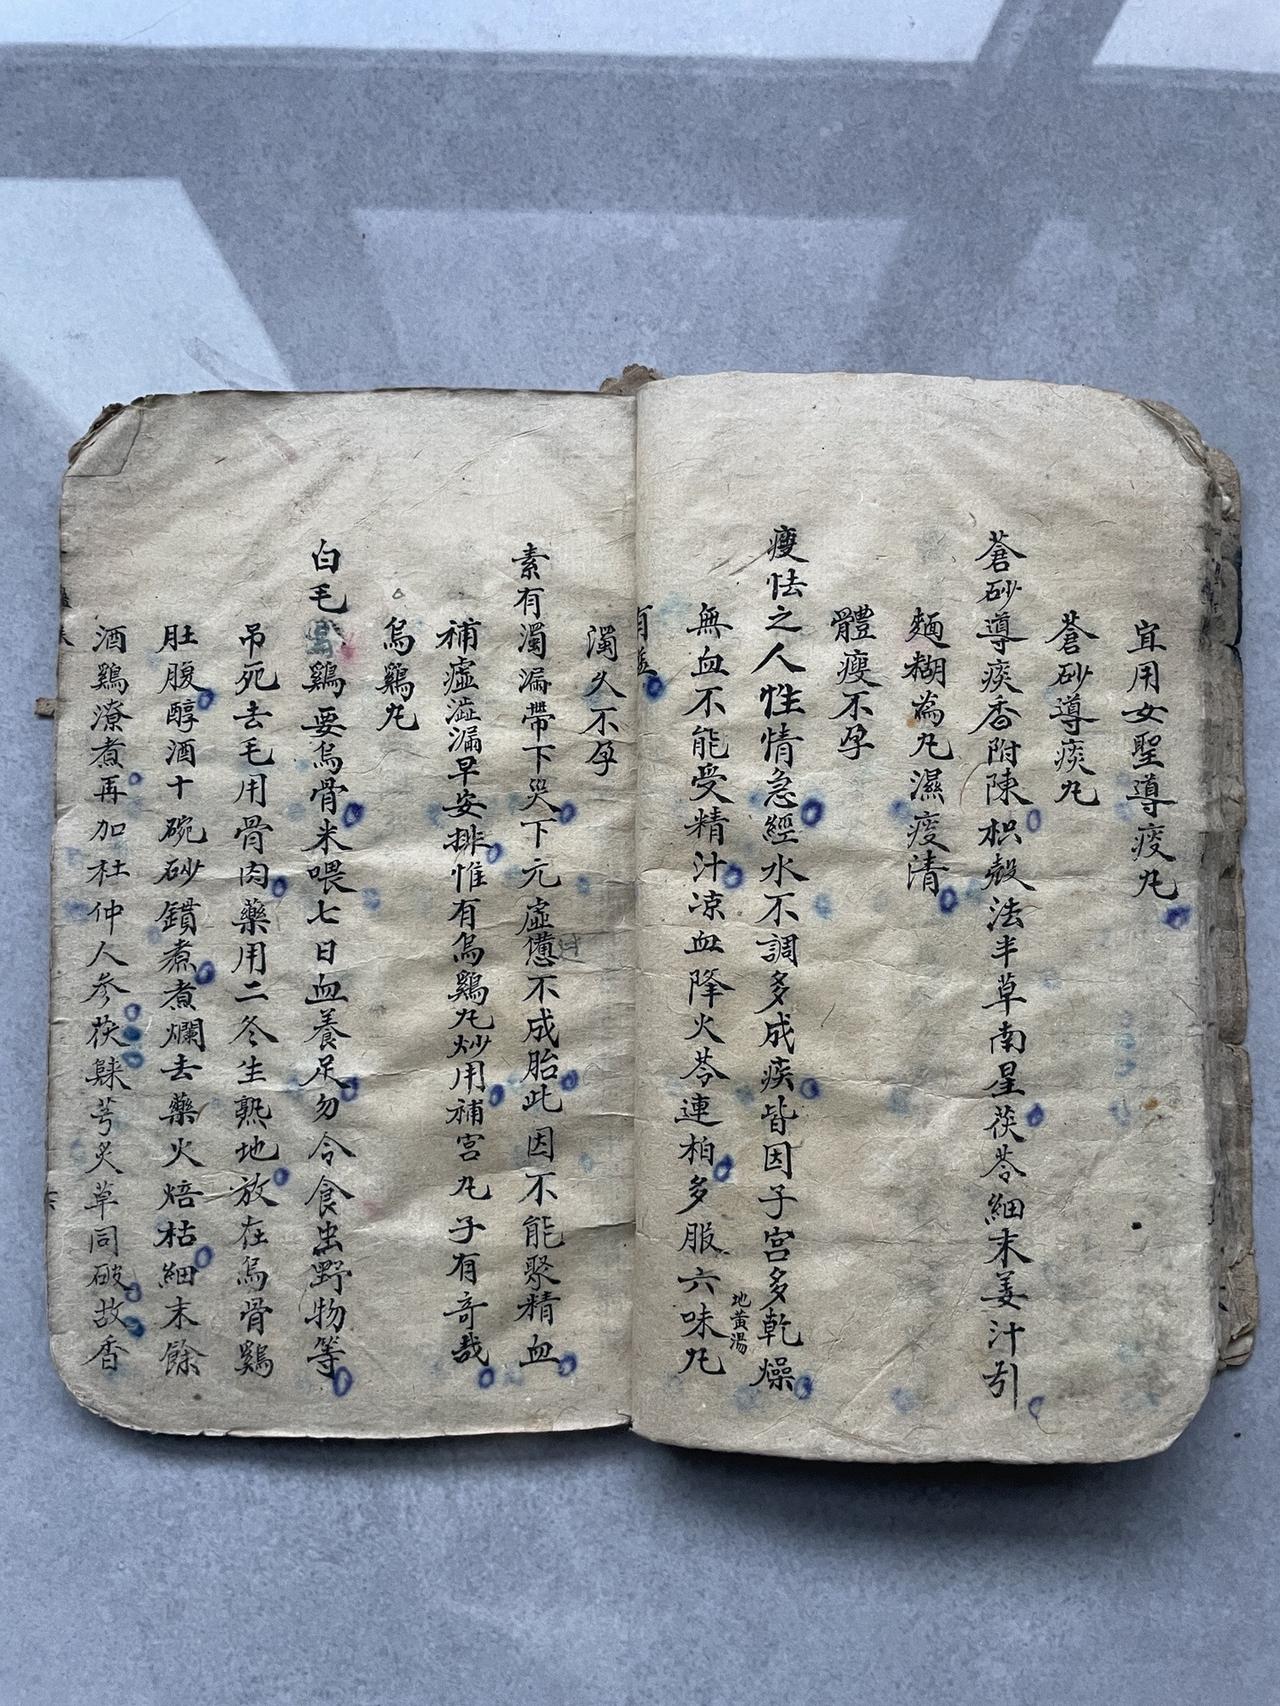 宜用女聖導痰丸
蒼砂導痰丸
蒼砂導痰香附陳枳殼法半草南星茯苓細末姜汁引
麵糊為丸濕痰清
體瘦不孕
瘦怯之人性情急經水不調多成疾皆因子宮多乾燥
無血不能受精汁凉血降火芩連柏多服六味丸
地黃湯
有益
濁久不孕
素有濁漏帶下哭下元虛憊不成胎此因不能聚精血
補虛澁漏早安排惟有烏鷄丸炒用補宮丸子有奇哉
烏鷄丸
白毛鷄要烏骨米喂七日血養足勿令食虫野物等
吊死去毛用骨肉藥用二冬生熟地放在烏骨鷄
肚腹醇酒十碗砂鑚煮煮爛去藥火焙枯細末餘
酒鷄潦煮再加杜仲人参茯歸芎炙草同破故香